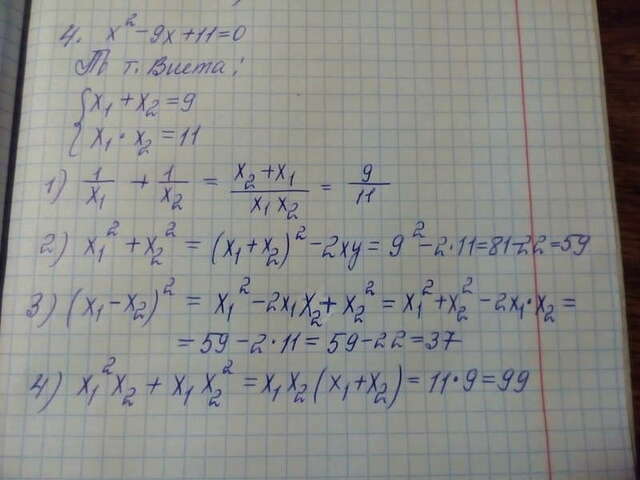 4. x² - 9x + 11 = 0
По т. Виета:
{ x₁ + x₂ = 9
x₁ · x₂ = 11
1) 1/x₁ + 1/x₂ = (x₂ + x₁)/(x₁ x₂) = 9/11
2) x₁² + x₂² = (x₁ + x₂)² - 2xy = 9² - 2·11 = 81 - 22 = 59
3) (x₁ - x₂)² = x₁² - 2x₁x₂ + x₂² = x₁² + x₂² - 2x₁·x₂ =
= 59 - 2·11 = 59 - 22 = 37
4) x₁²x₂ + x₁x₂² = x₁x₂(x₁ + x₂) = 11·9 = 99